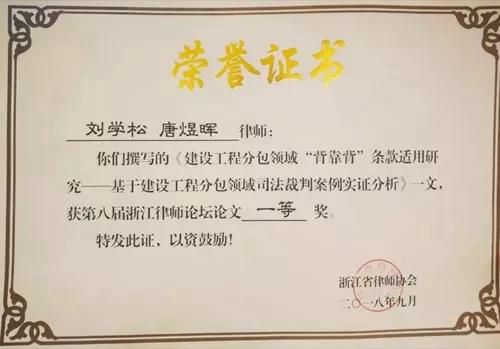 荣誉证书
刘学松 唐煜晖 律师：
你们撰写的《建设工程分包领域“背靠背”条款适用研
究——基于建设工程分包领域司法裁判案例实证分析》一文，
获第八届浙江律师论坛论文 一等 奖。
特发此证，以资鼓励！
浙江省律师协会
二〇一八年九月